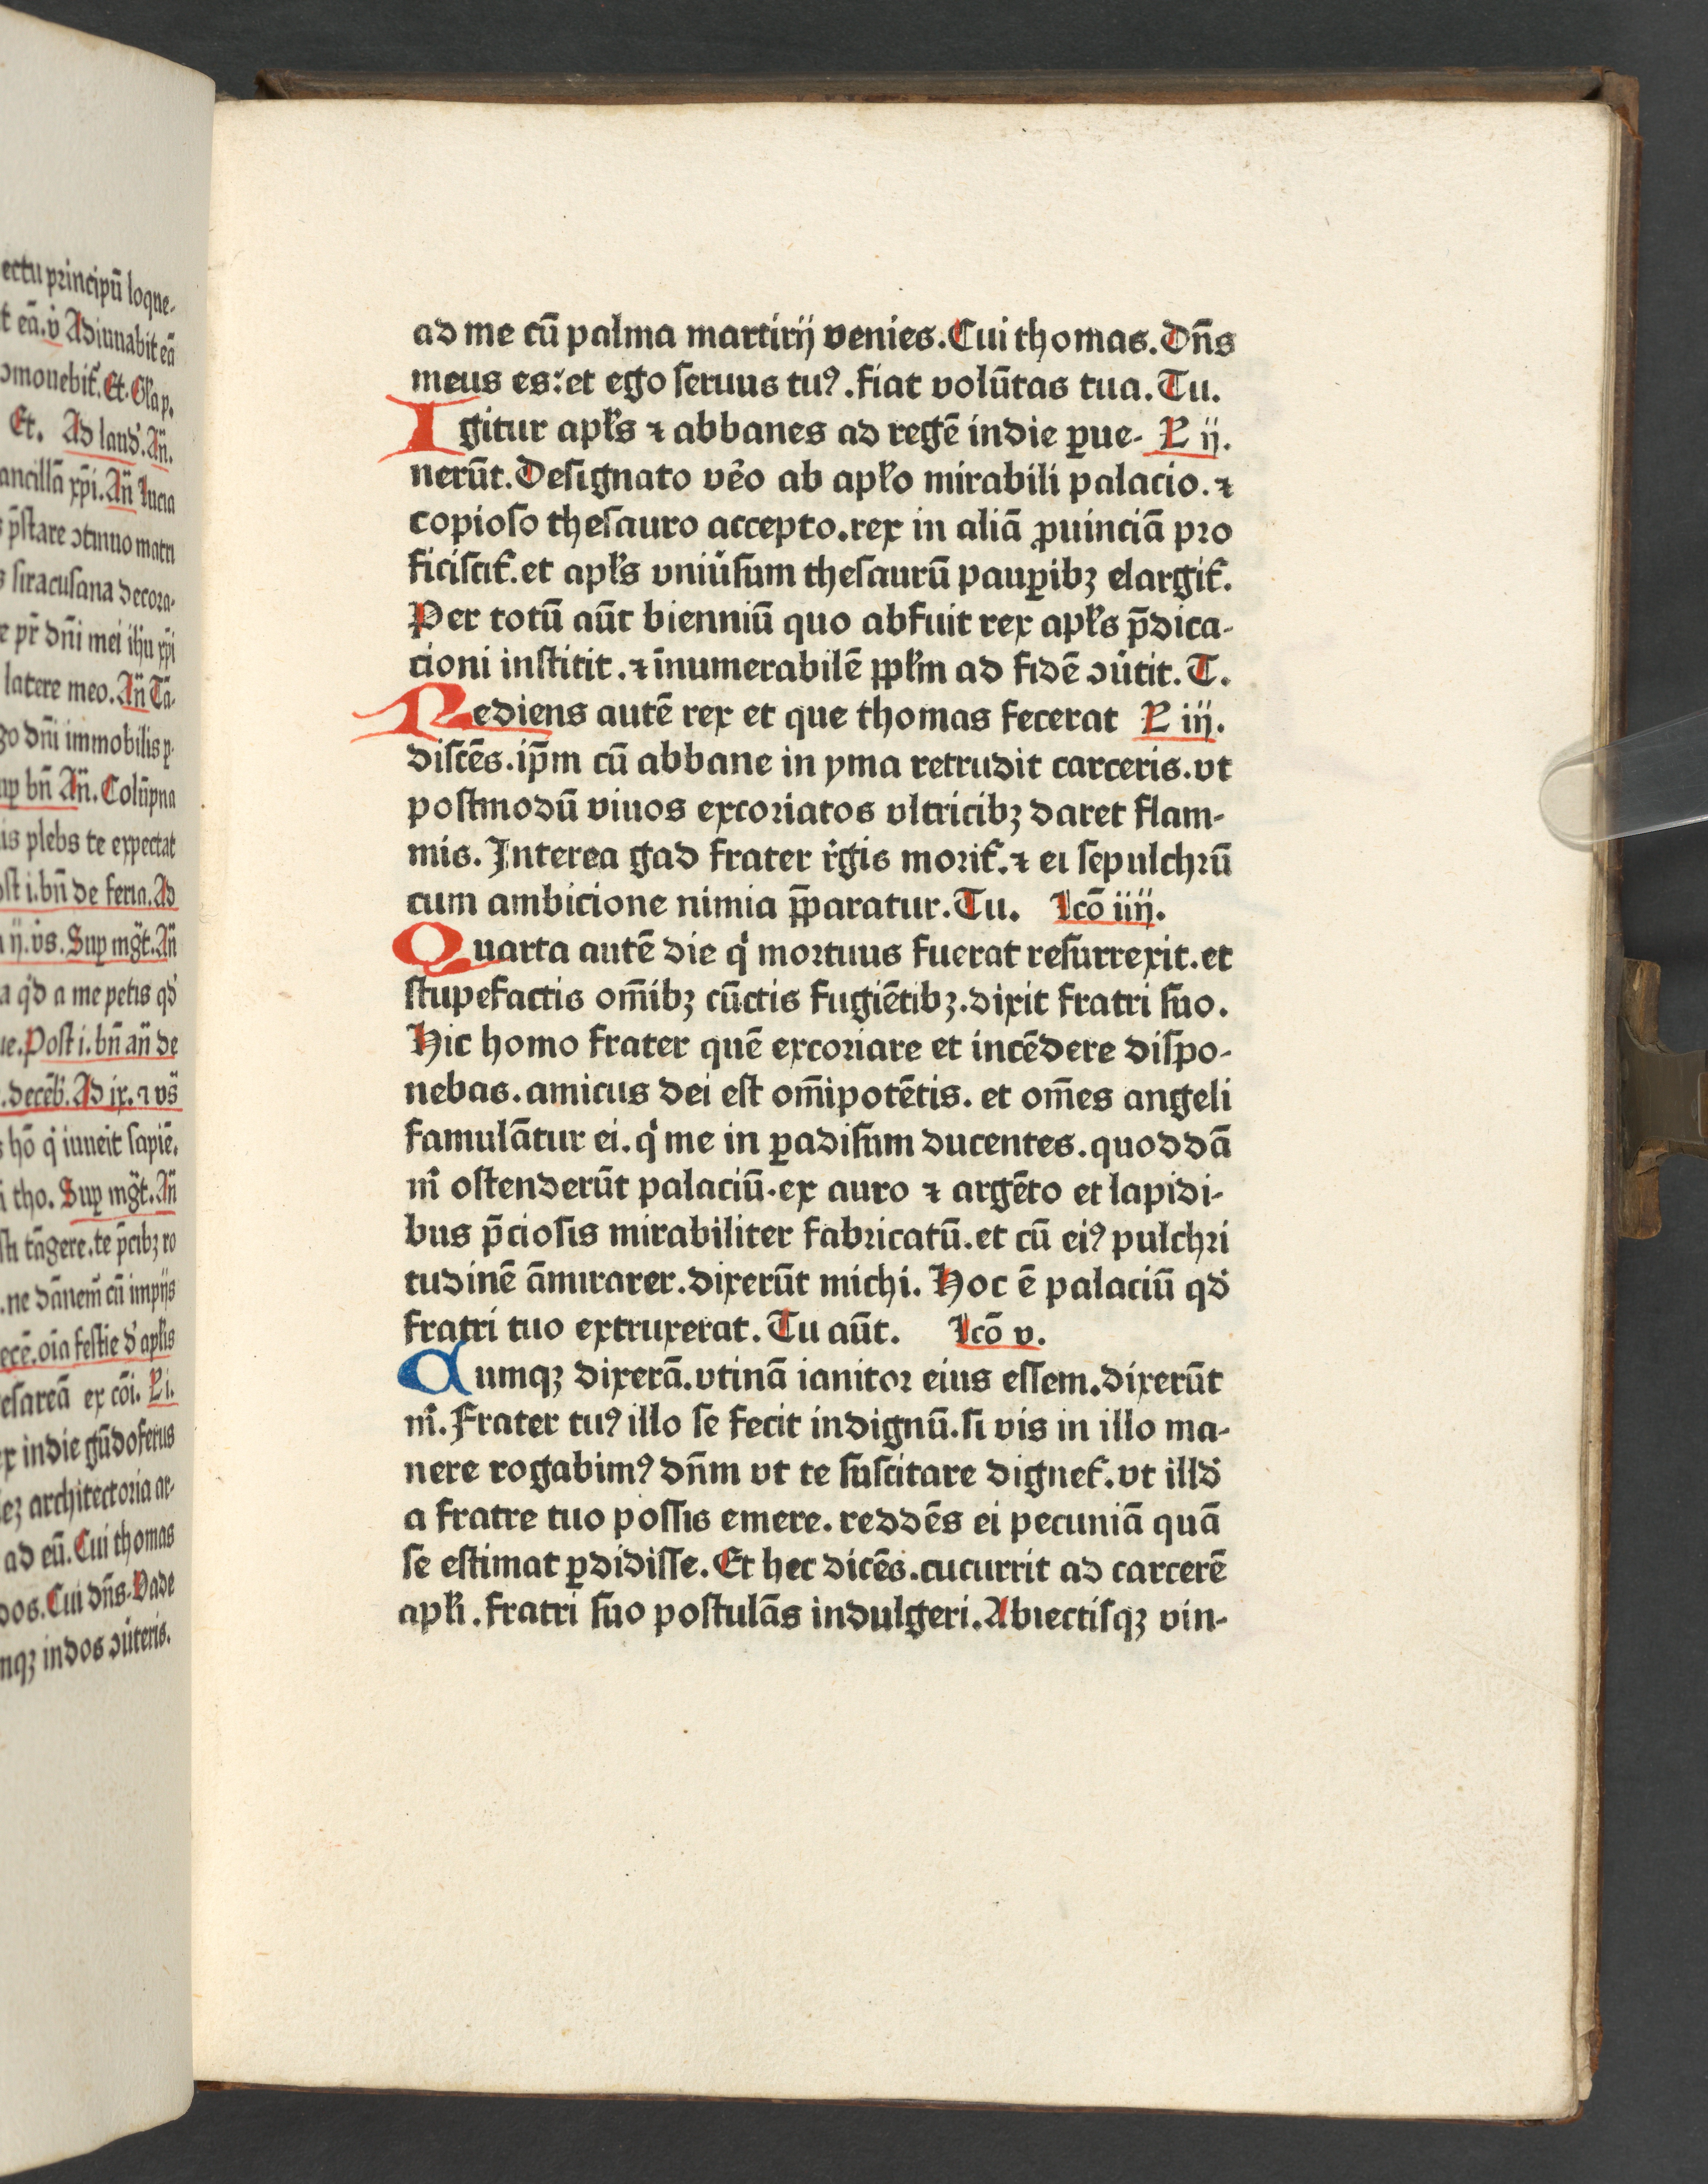 ectu principū loque-
t eā. v̇ Adiuuabit eā
ↄmouebit᷑. Et. Gła p.
Et. Ad laud᷒. Añ.
ancillā xp̄i. Añ Lucia
p̄stare ↄtinuo matri
siracusana decora-
e pr̄ dn̄i mei ihū xp̄i
latere meo. Añ Tā-
go dn̄i immobilis p̲
up̲ bn̄ Añ. Colūpna
is plebs te expectat
ost i. bn̄ de feria. Ad
ij. v̇s. Sup̲ mḡt. Añ
a qd̓ a me petis qd̓
ue. Post i. bn̄ añ de
. decēb᷑. Ad ix. ⁊ vs̄
hō q̇ iuueit sapiē.
i tho. Sup̲ mḡt. Añ
tāgere. te p̄cibꝫ ro
. ne dānem̄ cū impijs
ecē. oīa festie d̓ apłis
esareā ex cōi. Ł i.
ex indie gūdoferus
eꝫ architectoria ar-
ad eū. Cui thomas
dos. Cui dn̄s. Vade
mqꝫ indos ↄu̇teris.
ad me cū palma martirij venies. Cui thomas. Dn̄s
meus es: et ego seruus tuꝰ. fiat volūtas tua. Tu.
Igitur apłs ⁊ abbanes ad regē indie ꝑue- Ł ij.
nerūt. Designato ve̓o ab apło mirabili palacio. ⁊
copioso thesauro accepto. rex in aliā ꝓuinciā pro
ficiscit᷑. et apłs vniu̓sum thesaurū pauꝑibꝫ elargit᷑.
Per totū aūt bienniū quo abfuit rex apłs p̄dica-
cioni institit. ⁊ īnumerabilē ppłm ad fidē ↄu̓tit. T.
Rediens autē rex et que thomas fecerat Ł iij.
discēs. ip̄m cū abbane in yma retrudit carceris. vt
postmodū viuos excoriatos vltricibꝫ daret flam-
mis. Interea gad frater r̓gis morit᷑. ⁊ ei sepulchrū
cum ambicione nimia p̄ꝑaratur. Tu. Lcō iiij.
Quarta autē die q̇ mortuus fuerat resurrexit. et
stupefactis om̄ibꝫ cūctis fugiētibꝫ. dixit fratri suo.
Hic homo frater quē excoriare et incēdere dispo-
nebas. amicus dei est om̄ipotētis. et om̄es angeli
famulātur ei. q̇ me in ꝑadisum ducentes. quoddā
ṁ ostenderūt palaciū. ex auro ⁊ argēto et lapidi-
bus p̄ciosis mirabiliter fabricatū. et cū eiꝰ pulchri
tudinē āmirarer. dixerūt michi. Hoc ē palaciū qd̓
fratri tuo extruxerat. Tu aūt. Lcō v.
Cumqꝫ dixerā. vtinā ianitor eius essem. dixerūt
ṁ. Frater tuꝰ illo se fecit indignū. si vis in illo ma-
nere rogabimꝰ dn̄m vt te suscitare dignet᷑. vt illd̓
a fratre tuo possis emere. reddēs ei pecuniā quā
se estimat ꝑdidisse. Et hec dicēs. cucurrit ad carcerē
apłi. fratri suo postulās indulgeri. Abiectisqꝫ vin-